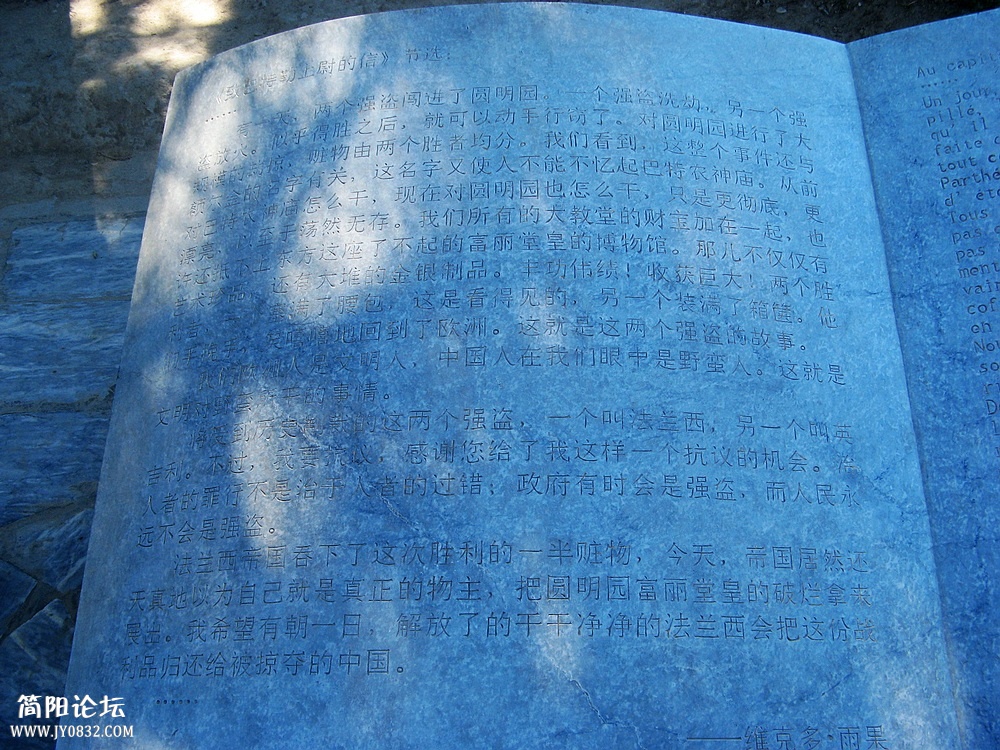 《致巴特勒上尉的信》 节选：
…… 有一天，两个强盗闯进了圆明园。一个强盗洗劫，另一个强
盗放火。似乎得胜之后，就可以动手行窃了。对圆明园进行了大
规模的劫掠，赃物由两个胜者均分。我们看到，这整个事件还与
额尔金的名字有关，这名字又使人不能不忆起巴特农神庙。从前
对巴特农神庙怎么干，现在对圆明园也怎么干，只是更彻底，更
漂亮，以至于荡然无存。我们所有的大教堂的财宝加在一起，也
许还抵不上东方这座了不起的富丽堂皇的博物馆。那儿不仅仅有
艺术珍品，还有大堆的金银制品。丰功伟绩！收获巨大！两个胜
利者，一个塞满了腰包，这是看得见的，另一个装满了箱箧。他
们手挽手，笑嘻嘻地回到了欧洲。这就是这两个强盗的故事。
我们欧洲人是文明人，中国人在我们眼中是野蛮人。这就是
文明对野蛮所干的事情。
将受到历史制裁的这两个强盗，一个叫法兰西，另一个叫英
吉利。不过，我要抗议，感谢您给了我这样一个抗议的机会。治
人者的罪行不是治于人者的过错；政府有时会是强盗，而人民永
远不会是强盗。
法兰西帝国吞下了这次胜利的一半赃物，今天，帝国居然还
天真地以为自己就是真正的物主，把圆明园富丽堂皇的破烂拿来
展出。我希望有朝一日，解放了的干干净净的法兰西会把这份战
利品归还给被掠夺的中国。
……
——维克多·雨果
Au capit
……
Un jour,
pillé,
qu'il
faite
tout c
Parthé
d'et
Tous
pas
ment
vain
cof
en
Nou
so
简阳论坛
WWW.JY0832.COM